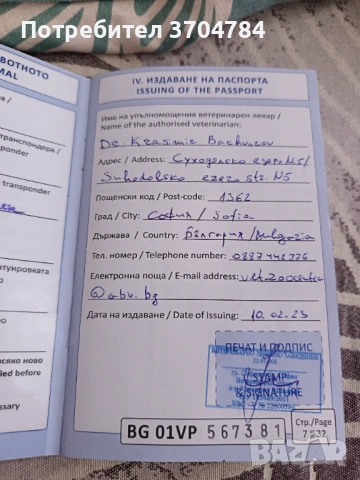 Потребител 3704784
ВОТНОТО
MAL
IV. ИЗДАВАНЕ НА ПАСПОРТА
ISSUING OF THE PASSPORT
Име на упълномощения ветеринарен лекар /
Name of the authorised veterinarian:
Dr. Krasimir
Адрес / Address: Суходолско езеро N5/
Suhodolsko ezero str. N5
Пощенски код / Post-code: 1362
Град / City: София / Sofia
Държава / Country: България/Bulgaria
Тел. номер / Telephone number: 0887442326
Електронна поща / E-mail address:
@abv.bg
Дата на издаване / Date of issuing: 10.02.23
ПЕЧАТ И ПОДПИС
STAMP
& SIGNATURE
BG 01VP 567381
Стр./Page
7
32
транспондера /
transponder
transponder
туировката
всяко ново
lied before
ssary
bazar